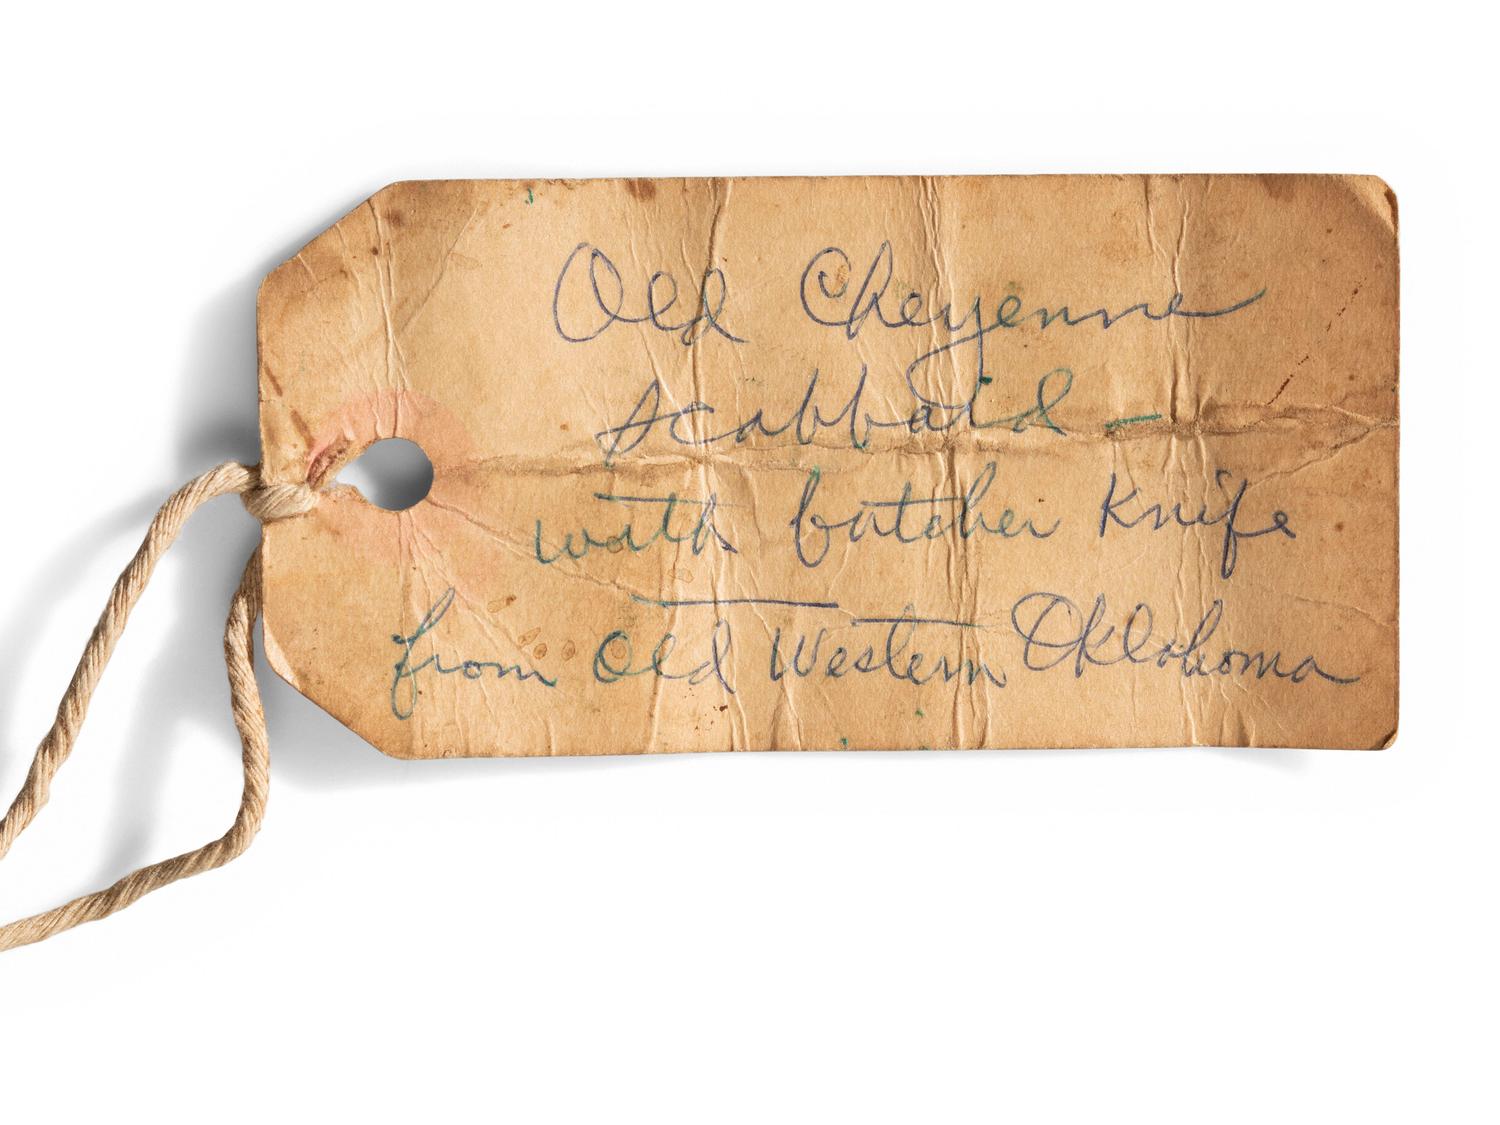 Old Cheyenne
scabbard –
with butcher Knife
from Old Western Oklahoma